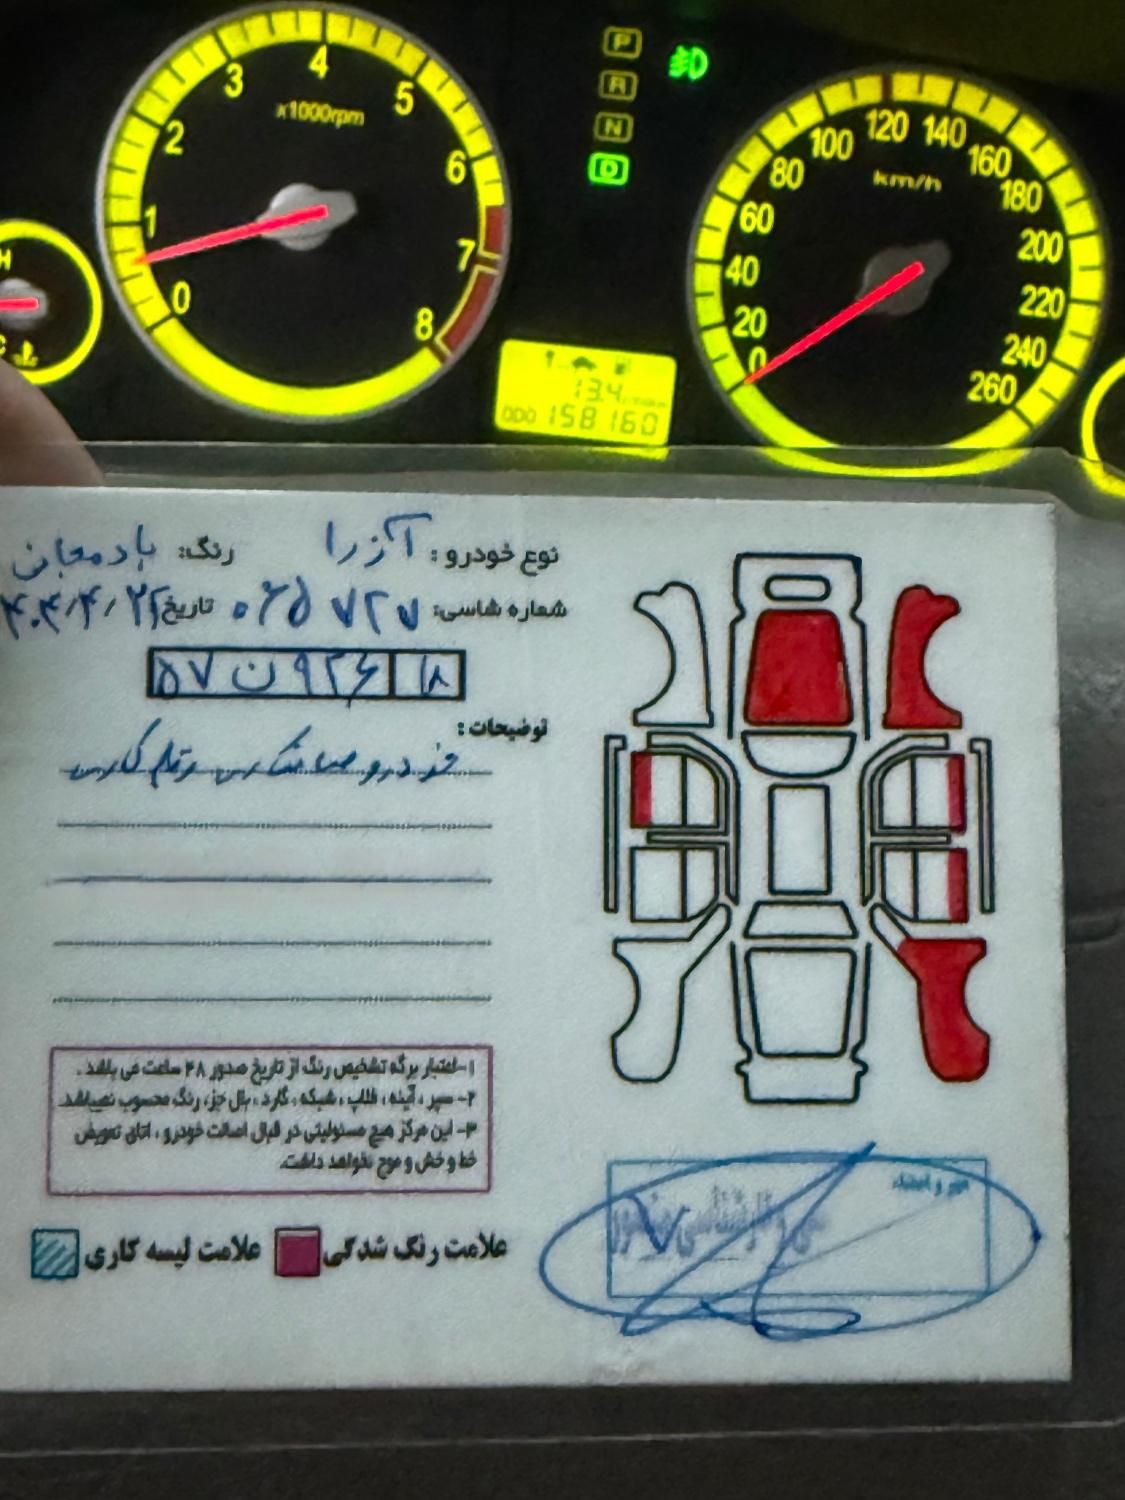 0 1 2 3 4 5 6 7 8
x1000rpm
P
R
N
D
0 20 40 60 80 100 120 140 160 180 200 220 240 260
km/h
H
C
13.4
ODO 158160
نوع خودرو: آزرا رنگ: بادمجان
شماره شاسی: ۰۶۵۷۲۷ تاریخ ۴۰۴/۴/۲۲
۵۷ ن ۹۲۶ ۱۸
توضیحات:
خودرو صافکاری
۱-اعتبار برگه تشخیص رنگ از تاریخ صدور ۴۸ ساعت می باشد.
۲- سپر، آینه، قلاب، شبکه، گارد، بال جزء رنگ محسوب نمیباشد
۳- این مرکز هیچ مسئولیتی در قبال اصالت خودرو، اتاق تعویض
خط و خش و موج نخواهد داشت.
علامت رنگ شدگی علامت لیسه کاری
مهر و امضاء